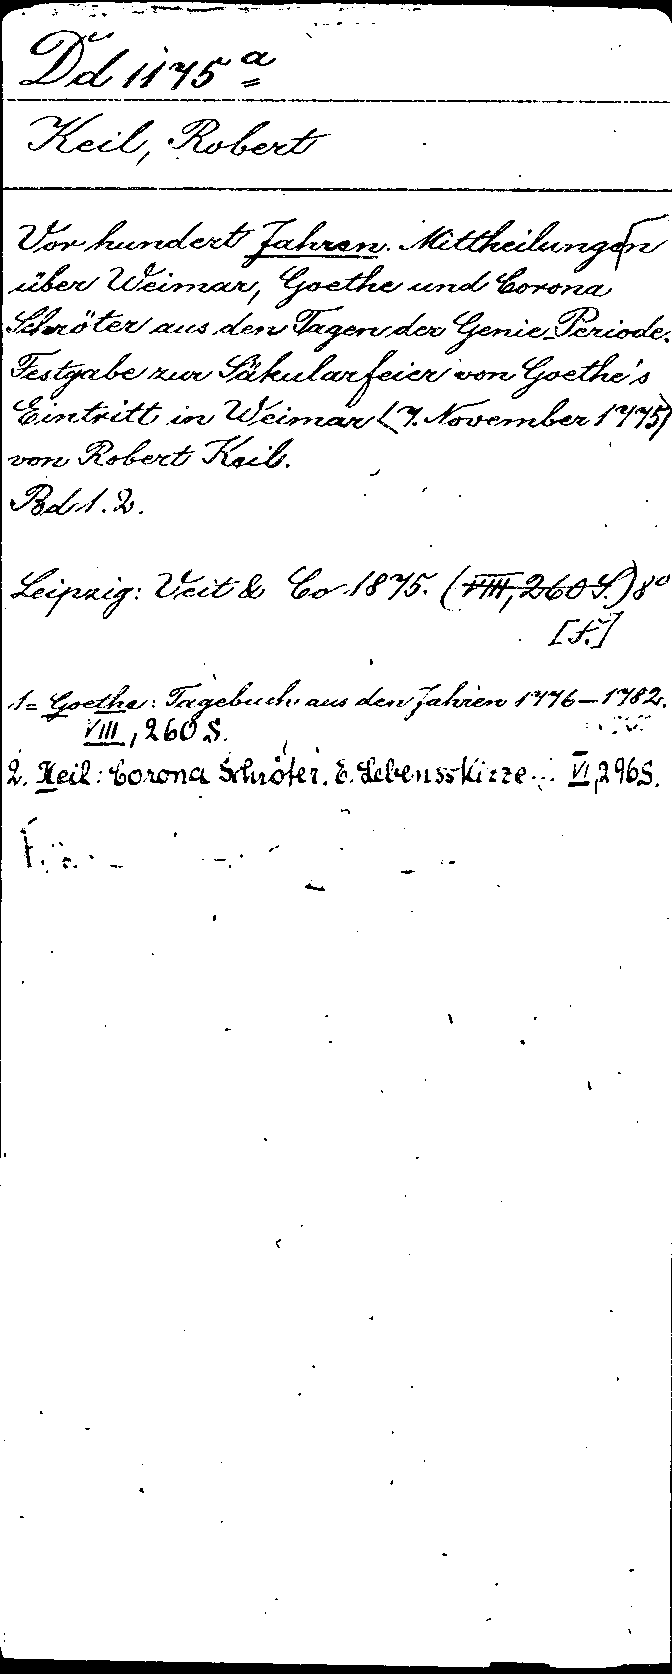 Dd 1175 a
Keil, Robert
Vor hundert Jahren. Mittheilungen
über Weimar, Goethe und Corona
Schröter aus den Tagen der Genie-Periode.
Festgabe zur Säkularfeier von Goethe's
Eintritt in Weimar (7. November 1775)
von Robert Keil.
Bd 1. 2.
Leipzig: Veit & Co 1875. (VIII, 260 S.) 8°
[f.]
1= Goethe: Tagebuch aus den Jahren 1776-1782.
VIII, 260 S.
2. Keil: Corona Schröter. E. Lebensskizze... VI, 296 S.